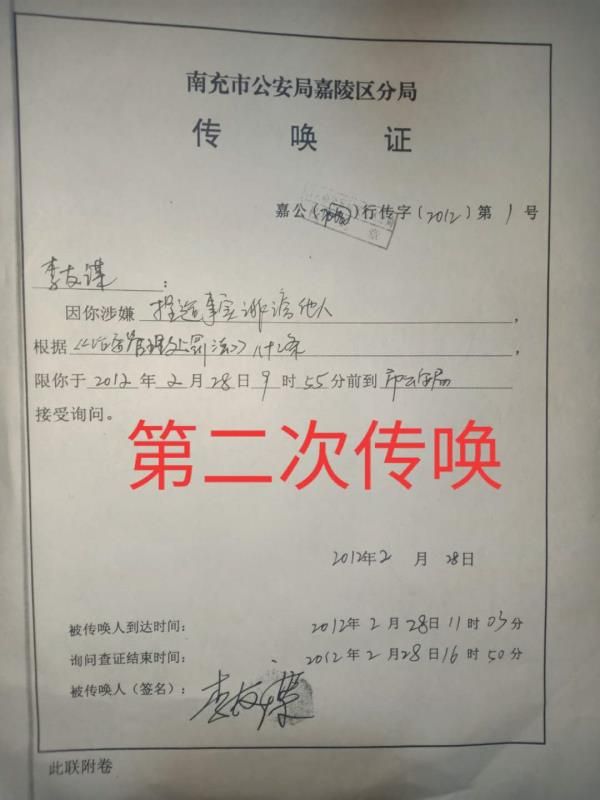 南充市公安局嘉陵区分局
传 唤 证
嘉公( )行传字(2012)第 1 号
李友谋:
因你涉嫌 捏造事实诽谤他人,
根据《治安管理处罚法》八十二条,
限你于2012年2月28日9时55分前到 市公安局
接受询问。
第二次传唤
2012年2月28日
被传唤人到达时间: 2012年2月28日11时03分
询问查证结束时间: 2012年2月28日16时50分
被传唤人(签名): 李友谋
此联附卷